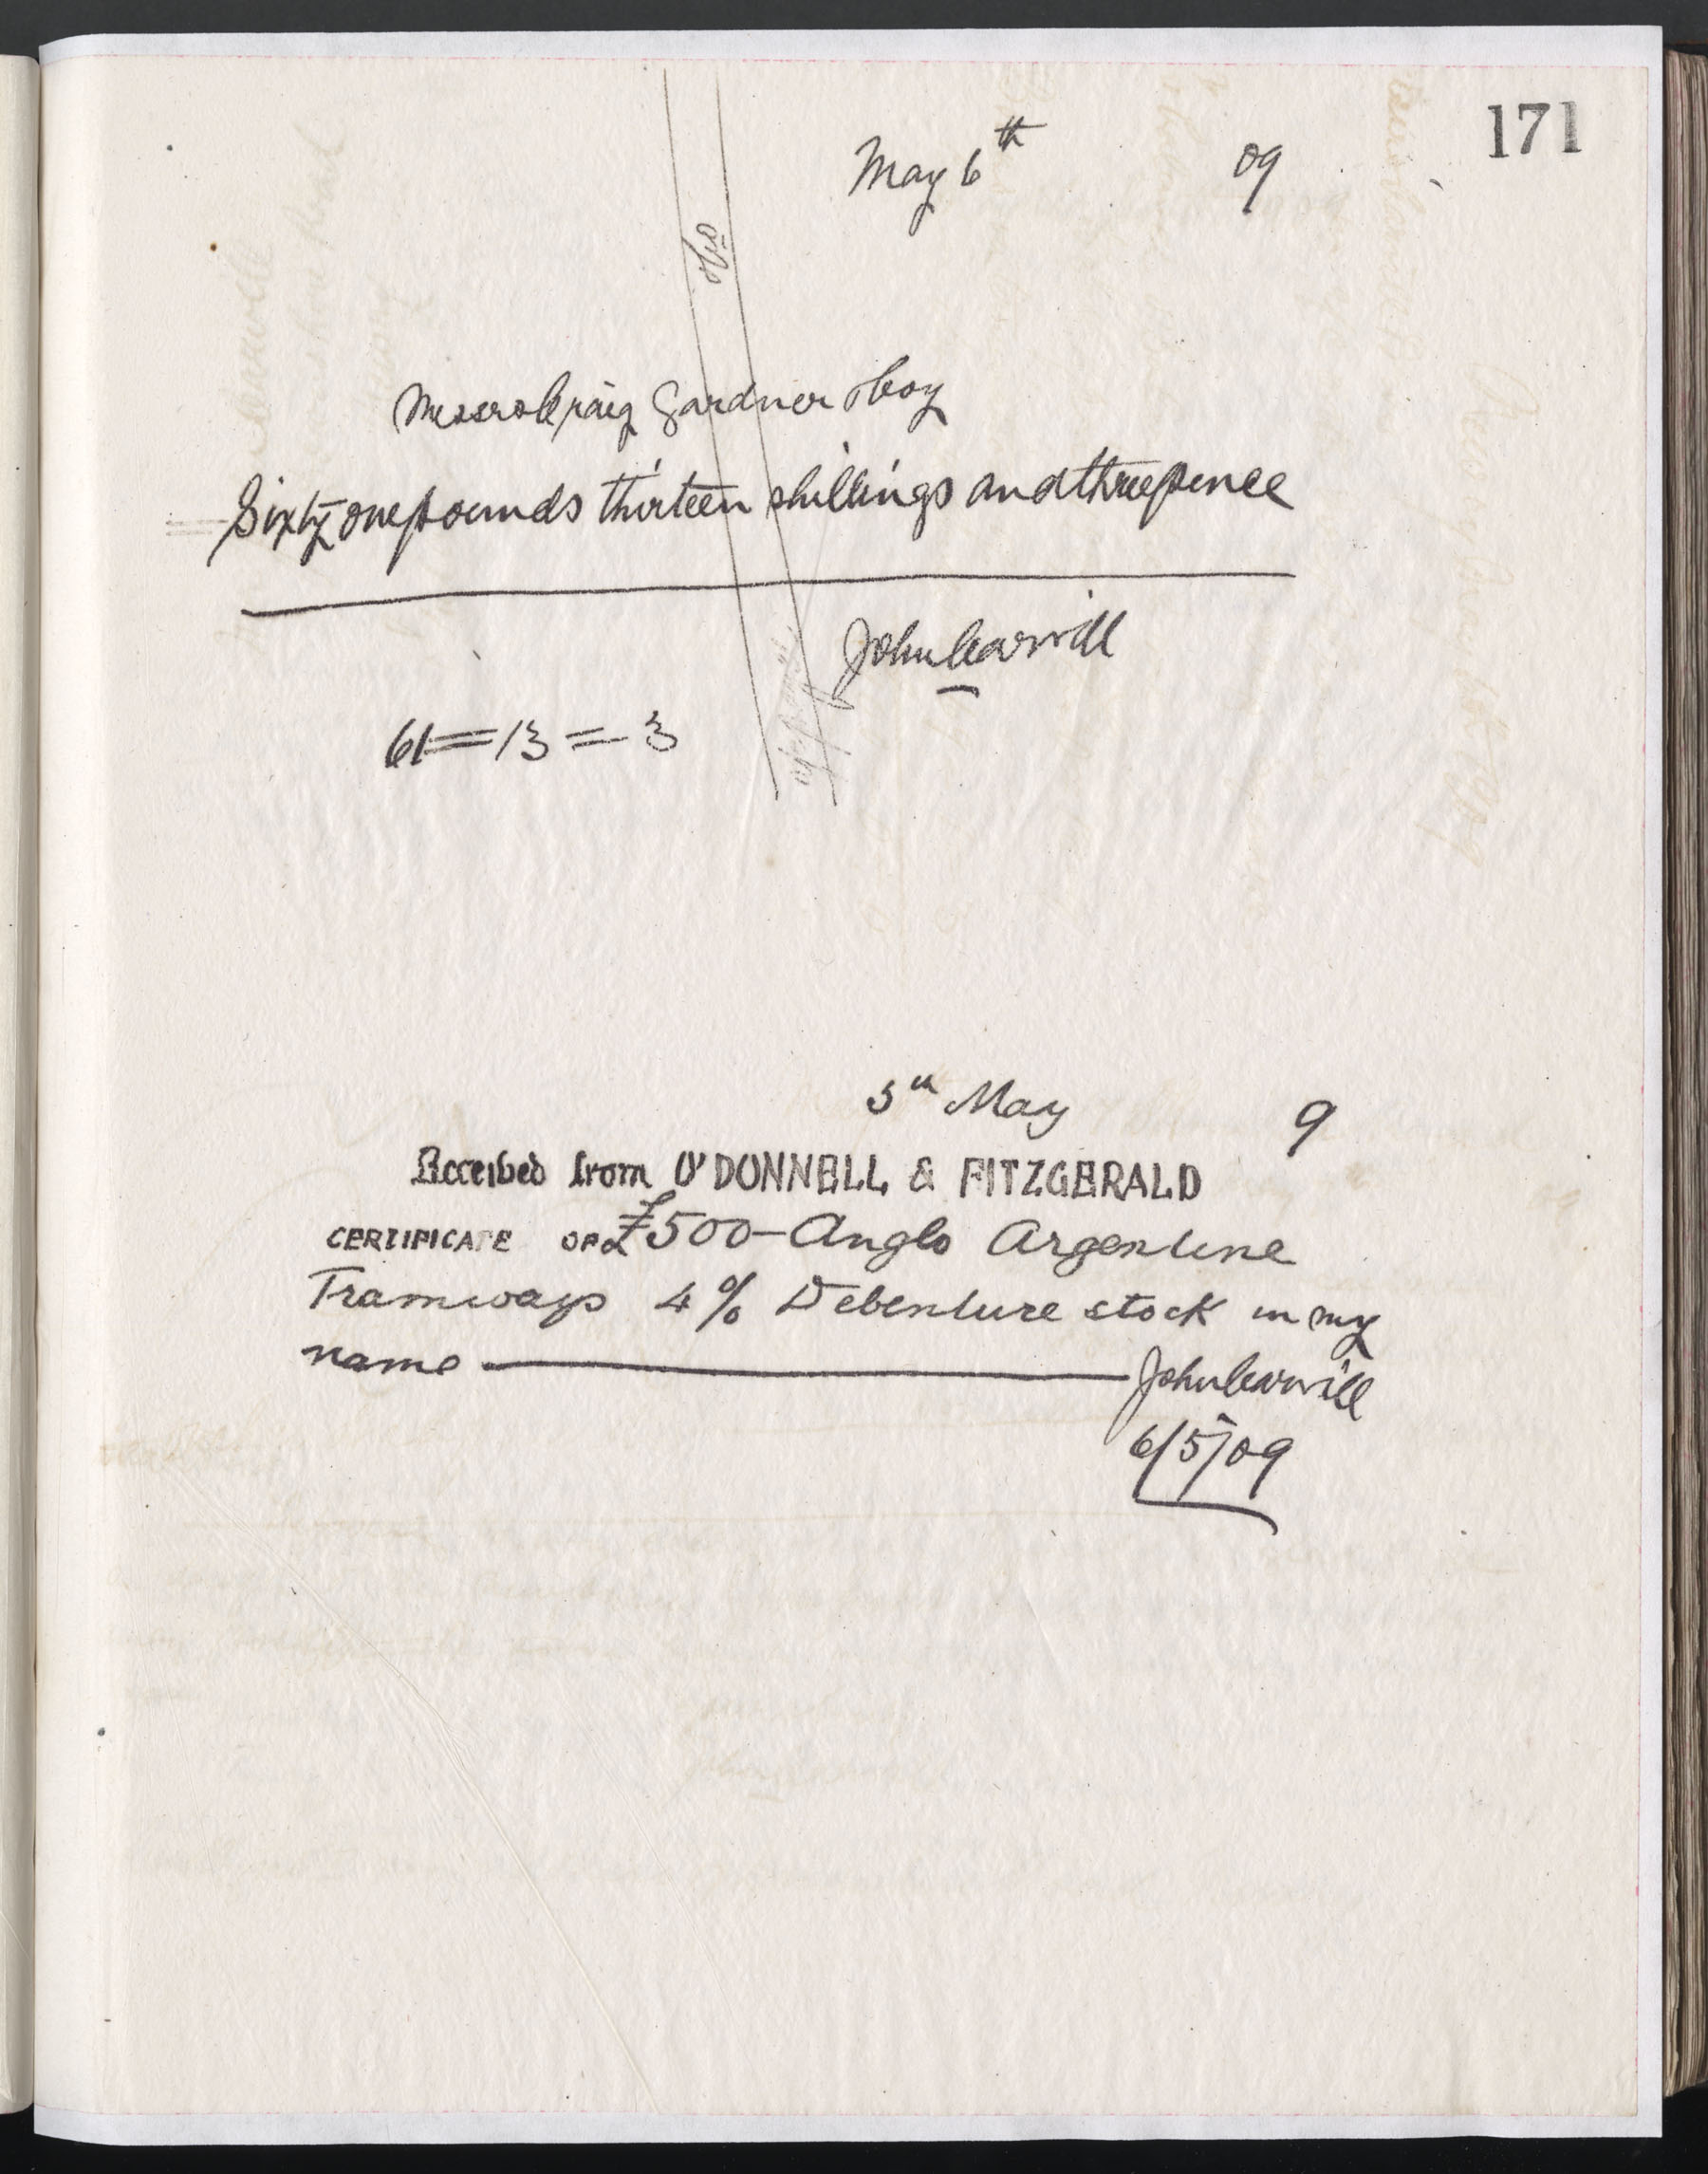 171
May 6th 09
& Co
Messrs Craig Gardner & Coy
Sixty one pounds thirteen shillings and threepence
John Carvill
61=13=3
5th May 9
Received from O'DONNELL & FITZGERALD
CERTIFICATE OF £500 - Anglo Argentine
Tramways 4% Debenture stock in my
name John Carvill
6/5/09